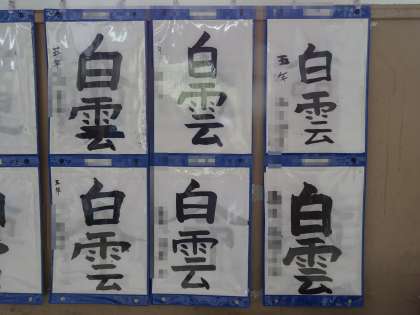 白雲
五年
白雲
白雲
五年
白雲
五年
白雲
白雲
白雲